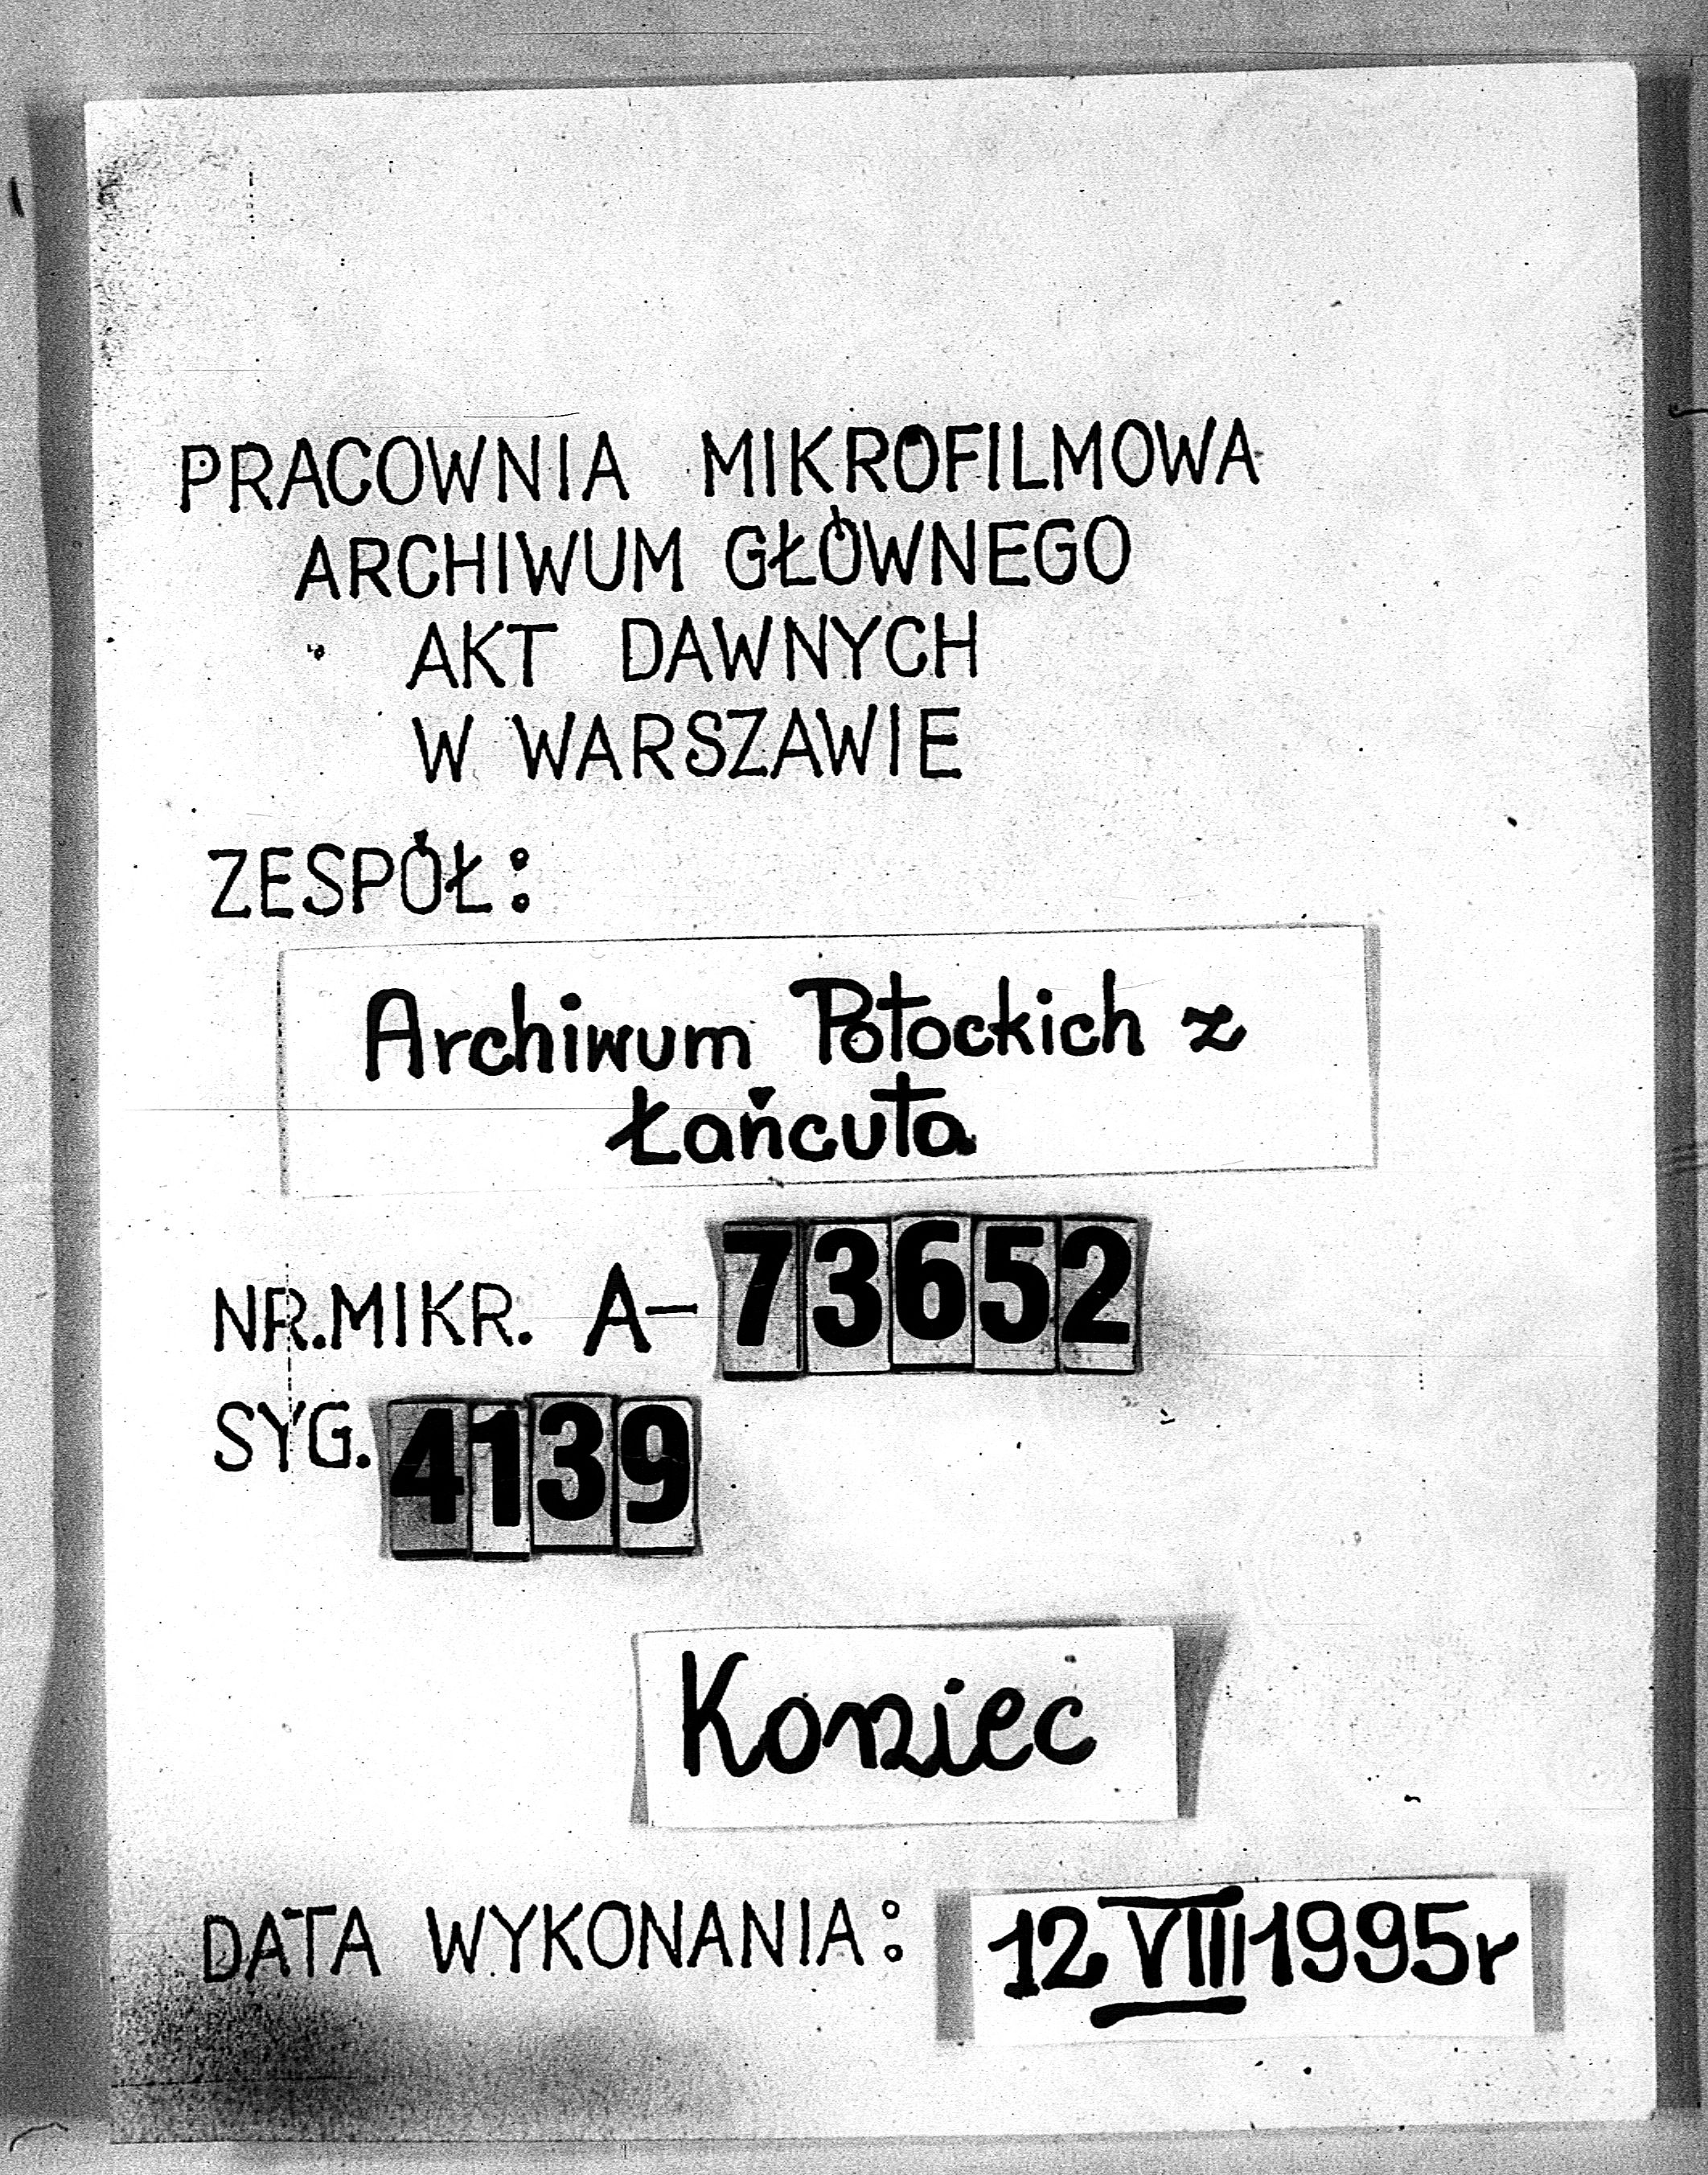 PRACOWNIA MIKROFILMOWA
ARCHIWUM GŁÓWNEGO
AKT DAWNYCH
W WARSZAWIE
ZESPÓŁ:
Archiwum Potockich z
Łańcuta
NR.MIKR. A-73652
SYG. 4139
Koniec
DATA WYKONANIA: 12 VIII 1995r